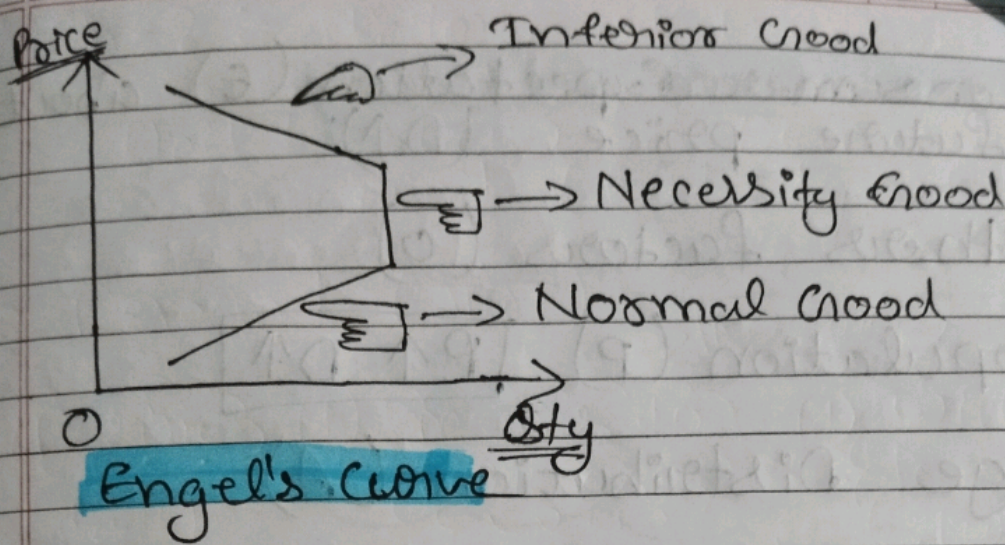 Price
Inferior Good
Necessity Good
Normal Good
O
Qty
Engel's Curve